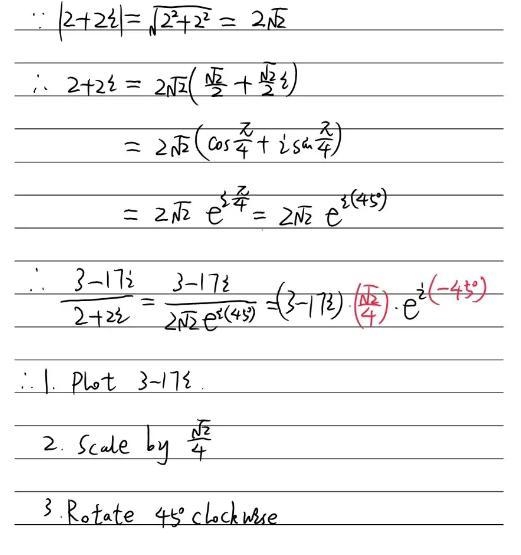 ∵ |2+2i| = √(2²+2²) = 2√2
∴ 2+2i = 2√2(√2/2 + √2/2 i)
= 2√2(cos π/4 + i sin π/4)
= 2√2 e^(i π/4) = 2√2 e^(i(45°))
∴ (3-17i)/(2+2i) = (3-17i)/(2√2 e^(i(45°))) = (3-17i)·(√2/4)·e^(i(-45°))
∴ 1. Plot 3-17i.
2. Scale by √2/4
3. Rotate 45° clockwise